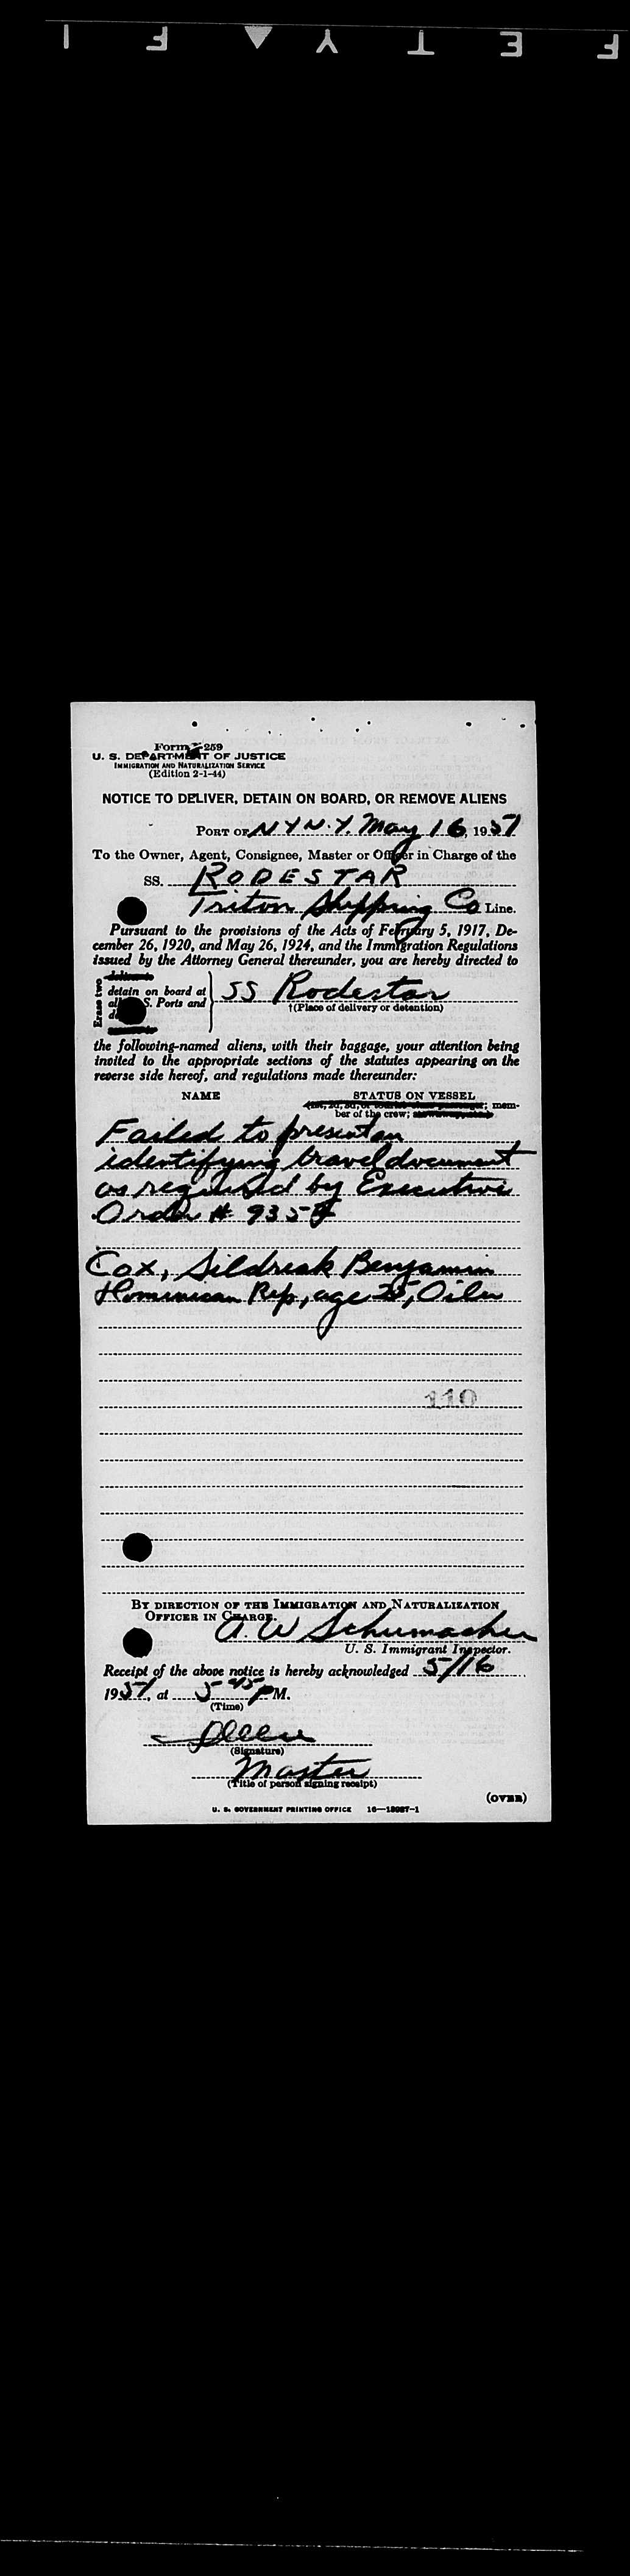 Form I-259
U. S. DEPARTMENT OF JUSTICE
IMMIGRATION AND NATURALIZATION SERVICE
(Edition 2-1-44)
NOTICE TO DELIVER, DETAIN ON BOARD, OR REMOVE ALIENS
PORT OF N Y N. Y. May 16, 1951
To the Owner, Agent, Consignee, Master or Officer in Charge of the
SS. RODESTAR
Triton Shipping Co Line.
Pursuant to the provisions of the Acts of February 5, 1917, De-
cember 26, 1920, and May 26, 1924, and the Immigration Regulations
issued by the Attorney General thereunder, you are hereby directed to
Erase two
detain on board at
all U. S. Ports and
SS Rodestar
†(Place of delivery or detention)
the following-named aliens, with their baggage, your attention being
invited to the appropriate sections of the statutes appearing on the
reverse side hereof, and regulations made thereunder:
NAME STATUS ON VESSEL
(1st, 2d, 3d, or tourist class passenger; mem-
ber of the crew;
Failed to present an
identifying travel document
as required by Executive
Order # 9352
Cox, Sildreak Benjamin
Dominican Rep, age 25, Oiler
110
BY DIRECTION OF THE IMMIGRATION AND NATURALIZATION
OFFICER IN CHARGE.
A. W Schumacher
U. S. Immigrant Inspector.
Receipt of the above notice is hereby acknowledged 5/16
1951, at 5 45 P M.
(Time)
(Signature)
Master
(Title of person signing receipt)
(OVER)
U. S. GOVERNMENT PRINTING OFFICE 16—18987-1